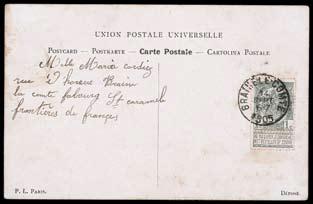 UNION POSTALE UNIVERSELLE
POSTCARD — POSTKARTE — Carte Postale — CARTOLINA POSTALE
Melle Maria cordiez
rue d'horeur Braine
la comte fabourg St caramel
frontieres de françes
1905
P. L. PARIS.
DÉPOSÉ.